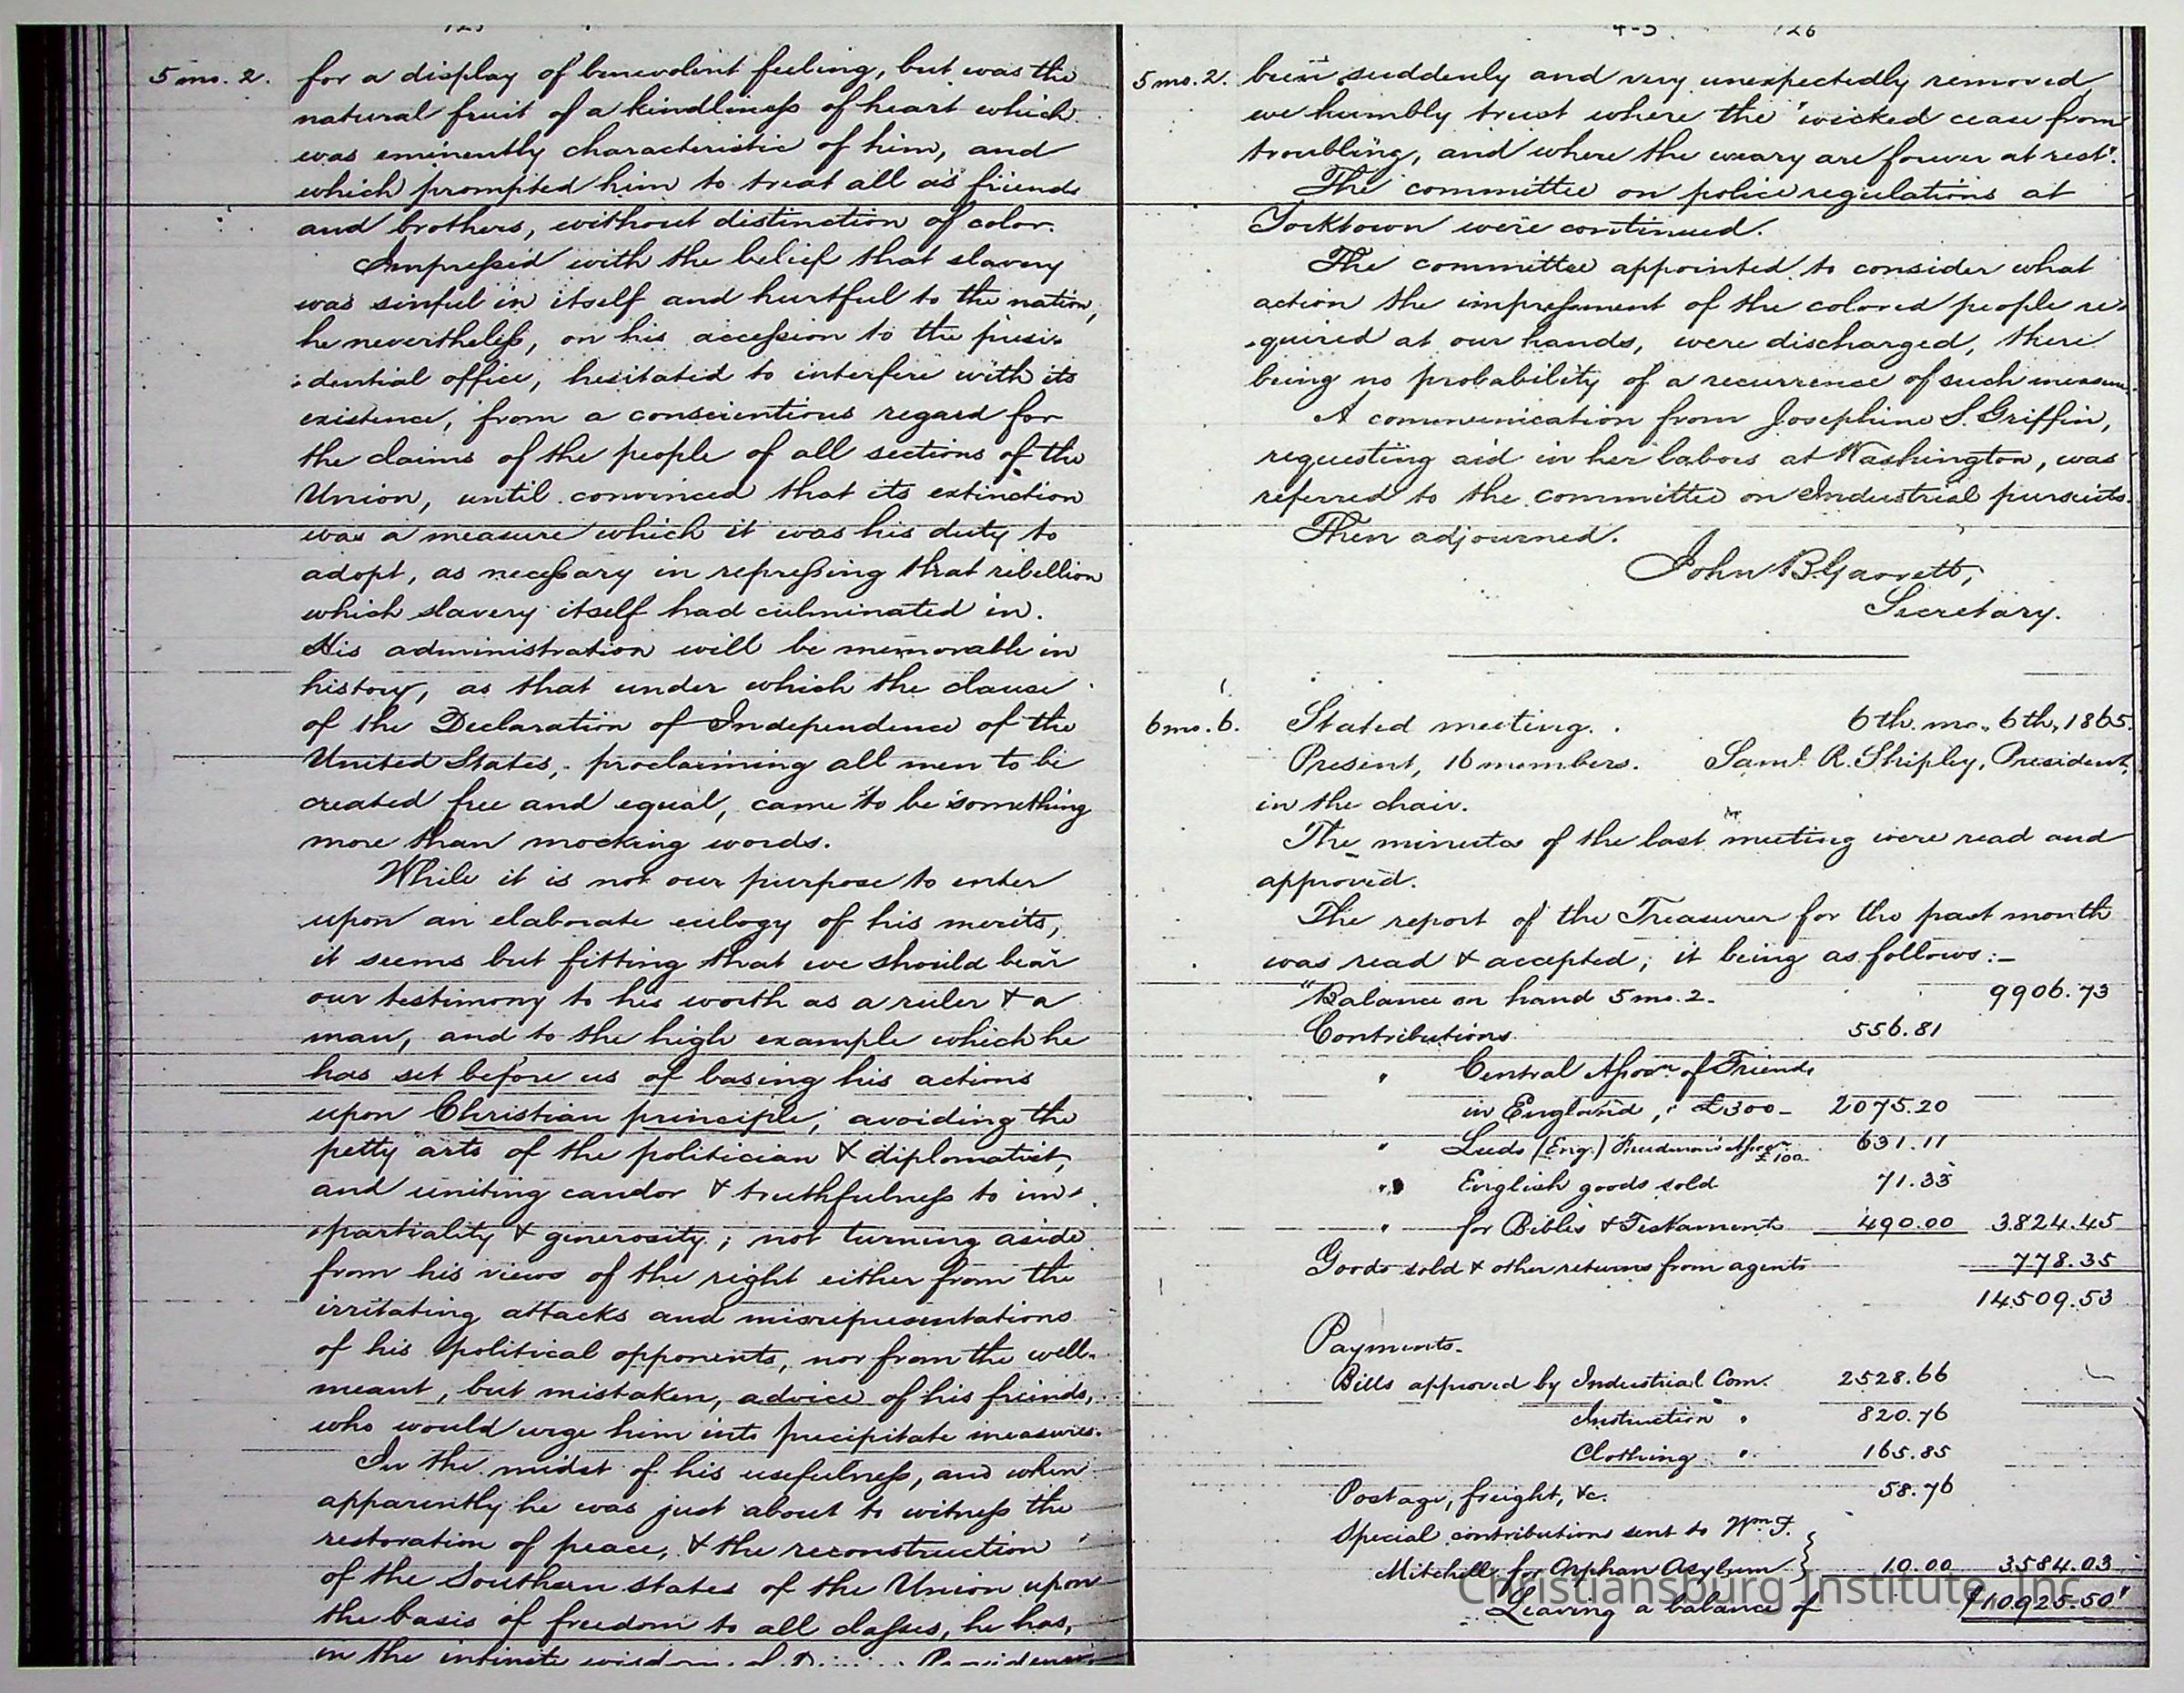 5 mo. 2. for a display of benevolent feeling, but was the
natural fruit of a kindliness of heart which
was eminently characteristic of him, and
which prompted him to treat all as friends
and brothers, without distinction of color.
Impressed with the belief that slavery
was sinful in itself and hurtful to the nation,
he nevertheless, on his accession to the presi-
-dential office, hesitated to interfere with its
existence, from a conscientious regard for
the claims of the people of all sections of the
Union, until convinced that its extinction
was a measure which it was his duty to
adopt, as necessary in repressing that rebellion
which slavery itself had culminated in.
His administration will be memorable in
history, as that under which the clause
of the Declaration of Independence of the
United States, proclaiming all men to be
created free and equal, came to be something
more than mocking words.
While it is not our purpose to enter
upon an elaborate eulogy of his merits,
it seems but fitting that we should bear
our testimony to his worth as a ruler & a
man, and to the high example which he
has set before us of basing his actions
upon Christian principle, avoiding the
petty arts of the politician & diplomatist,
and uniting candor & truthfulness to im-
-partiality & generosity; not turning aside
from his views of the right either from the
irritating attacks and misrepresentations
of his political opponents, nor from the well-
meant, but mistaken, advice of his friends,
who would urge him into precipitate measures.
In the midst of his usefulness, and when
apparently he was just about to witness the
restoration of peace, & the reconstruction
of the Southern States of the Union upon
the basis of freedom to all classes, he has,
in the infinite wisdom of Divine Providence,
126
5 mo. 2. been suddenly and very unexpectedly removed
we humbly trust where the "wicked cease from
troubling, and where the weary are forever at rest".
The committee on police regulations at
Yorktown were continued.
The committee appointed to consider what
action the impressment of the colored people re-
-quired at our hands, were discharged, there
being no probability of a recurrence of such measure.
A communication from Josephine S. Griffin,
requesting aid in her labors at Washington, was
referred to the committee on Industrial pursuits.
Then adjourned.
John B. Garrett,
Secretary.
6 mo. 6. Stated meeting. 6th. mo. 6th, 1865.
Present, 16 members. Saml. R. Shipley, President,
in the chair.
The minutes of the last meeting were read and
approved.
The report of the Treasurer for the past month
was read & accepted; it being as follows:-
"Balance on hand 5 mo. 2. 9906.73
Contributions 556.81
" Central Assocn. of Friends
in England, £300- 2075.20
" Leeds (Eng.) Freedmen's Assocn. £100- 631.11
" English goods sold 71.33
" for Bibles & Testaments 490.00 3824.45
Goods sold & other returns from agents 778.35
14509.53
Payments.
Bills approved by Industrial Com. 2528.66
Instruction " 820.76
Clothing " 165.85
Postage, freight, &c. 58.76
Special contributions sent to Wm. F.
Mitchell, for Orphan Asylum } 10.00 3584.03
Leaving a balance of $10925.50"
Christiansburg Institute, Inc.